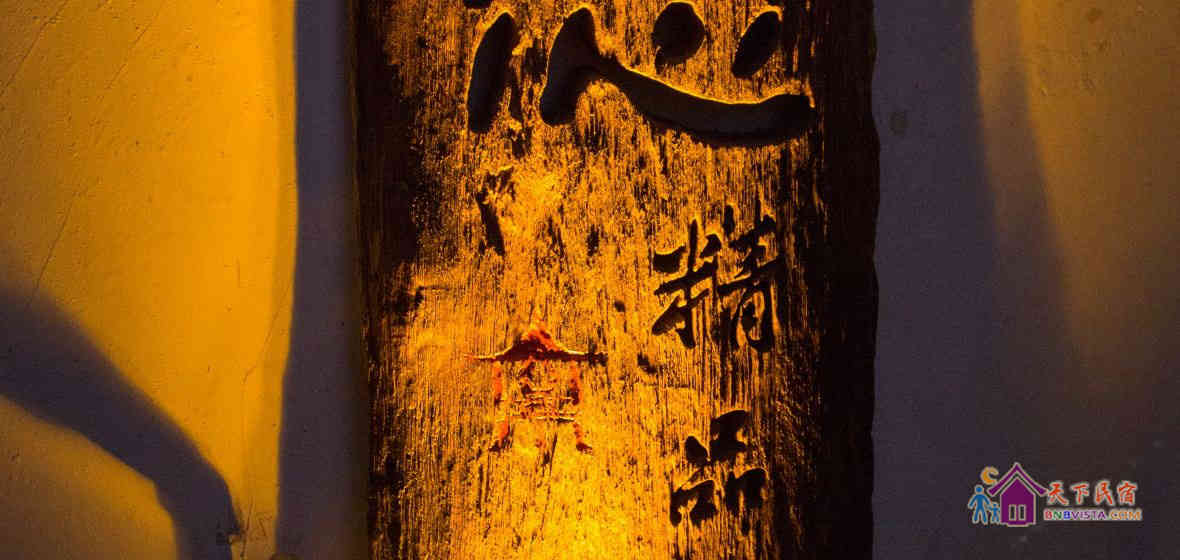 精品
天下民宿
BNBVISTA.COM